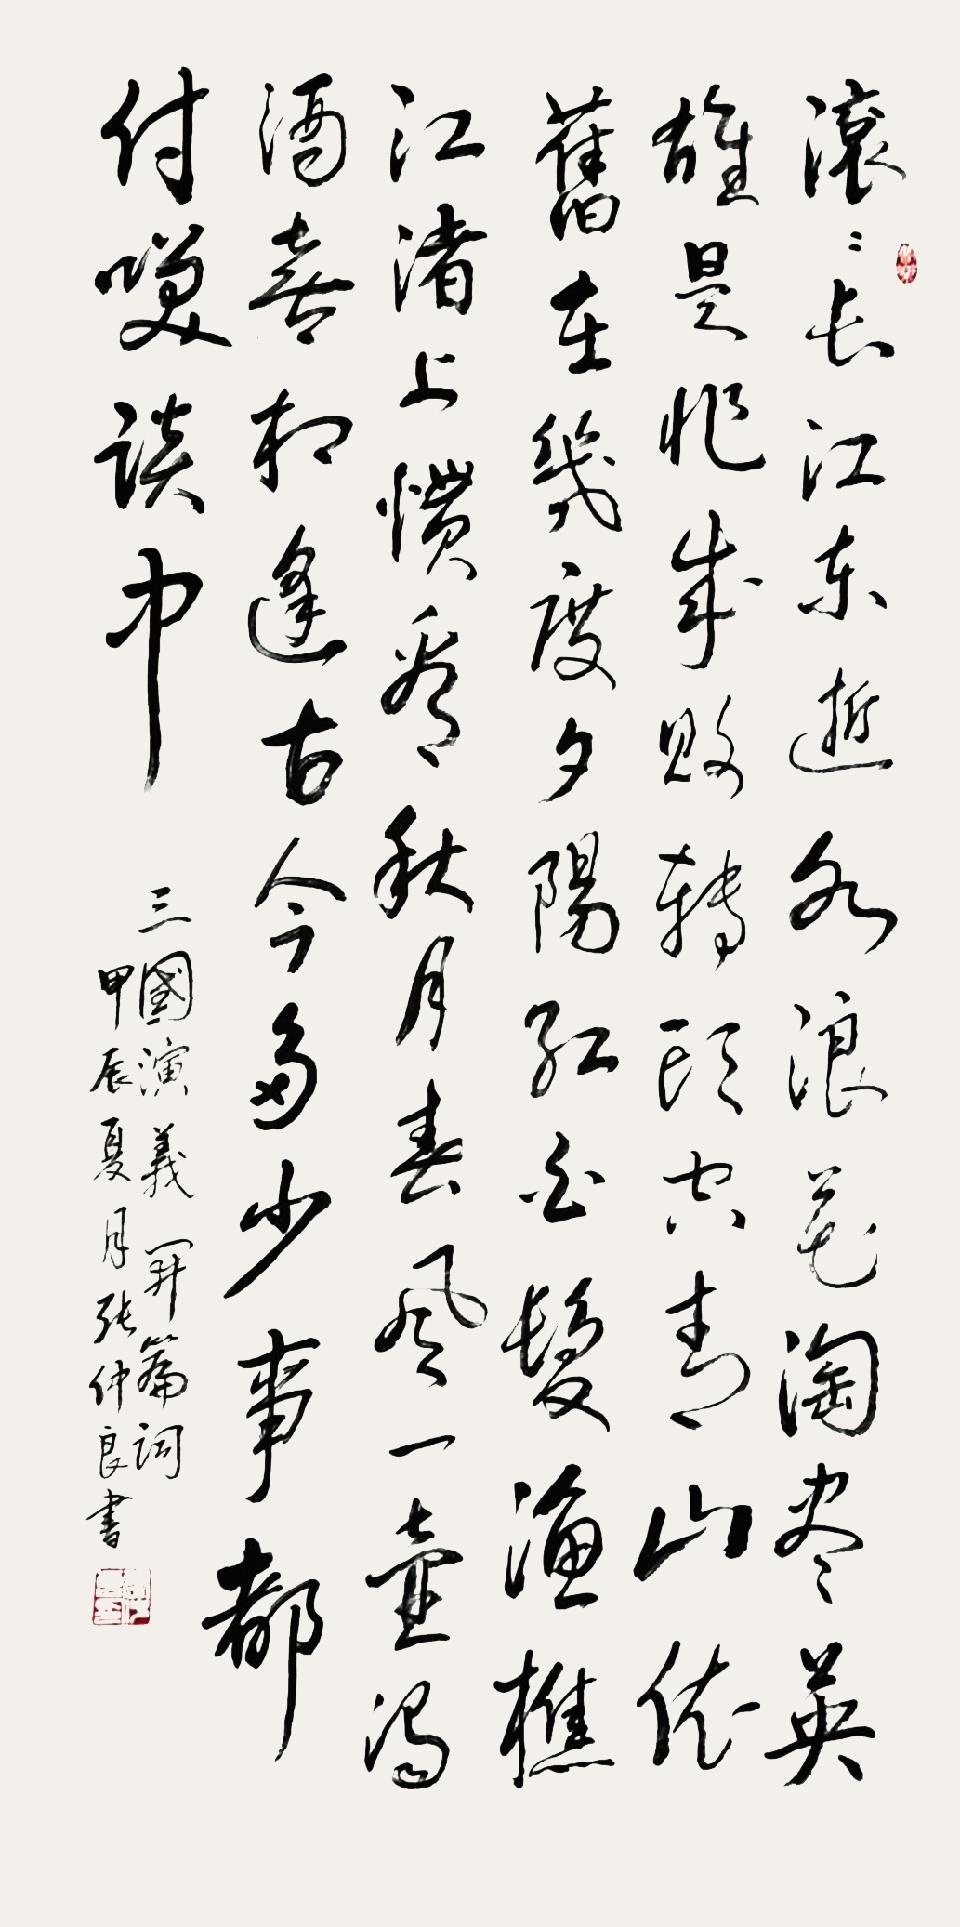 滚〻长江东逝水浪花淘尽英
雄是非成败转头空青山依
舊在幾度夕陽红白髮渔樵
江渚上惯看秋月春风一壶浊
酒喜相逢古今多少事都
付咲談中
三國演義開篇詞
甲辰夏月张仲良書